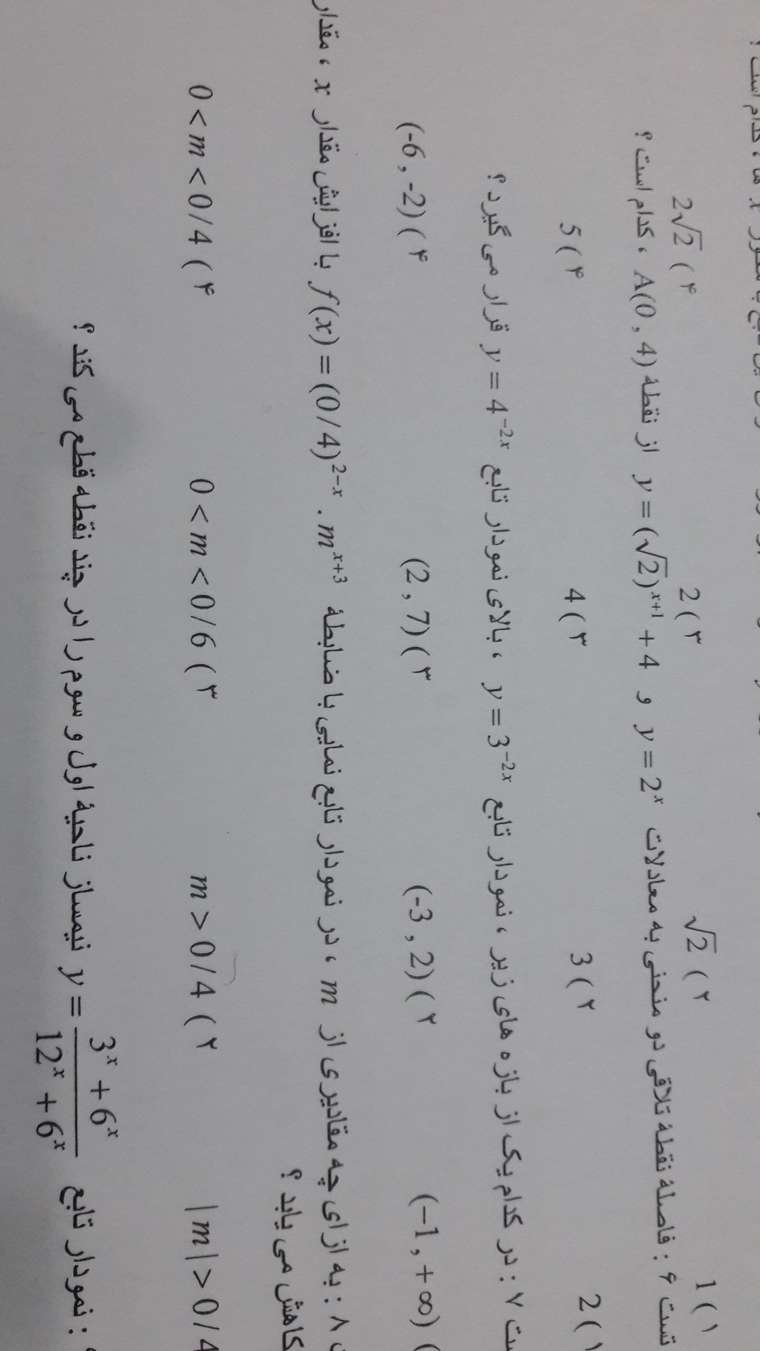 ، کدام است ؟
1 ( ۱ √2 ( ۲ 2 ( ۳ 2√2 ( ۴
تست ۶ : فاصلهٔ نقطهٔ تلاقی دو منحنی به معادلات y = 2^x و y = (√2)^{x+1} + 4 از نقطهٔ A(0 , 4) ، کدام است ؟
2 ( ۱ 3 ( ۲ 4 ( ۳ 5 ( ۴
ست ۷ : در کدام یک از بازه های زیر ، نمودار تابع y = 3^{-2x} ، بالای نمودار تابع y = 4^{-2x} قرار می گیرد ؟
(-1 , +∞) ( (-3 , 2) ( ۲ (2 , 7) ( ۳ (-6 , -2) ( ۴
۸ : به ازای چه مقادیری از m ، در نمودار تابع نمایی با ضابطهٔ f(x) = (0/4)^{2-x} . m^{x+3} با افزایش مقدار x ، مقدار
کاهش می یابد ؟
|m| > 0/4 m > 0/4 ( ۲ 0 < m < 0/6 ( ۳ 0 < m < 0/4 ( ۴
: نمودار تابع y = (3^x + 6^x)/(12^x + 6^x) نیمساز ناحیهٔ اول و سوم را در چند نقطه قطع می کند ؟